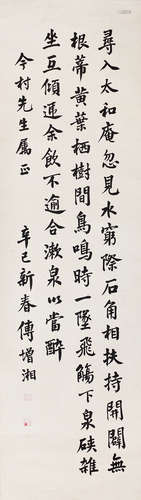 尋入太和庵忽見水窮際石角相扶持開闢無
根蒂黃葉栖樹間鳥鳴時一墜飛觴下泉硤雜
坐互傾逓余飲不逾合漱泉以當醉
今村先生属正
辛巳新春傅增湘